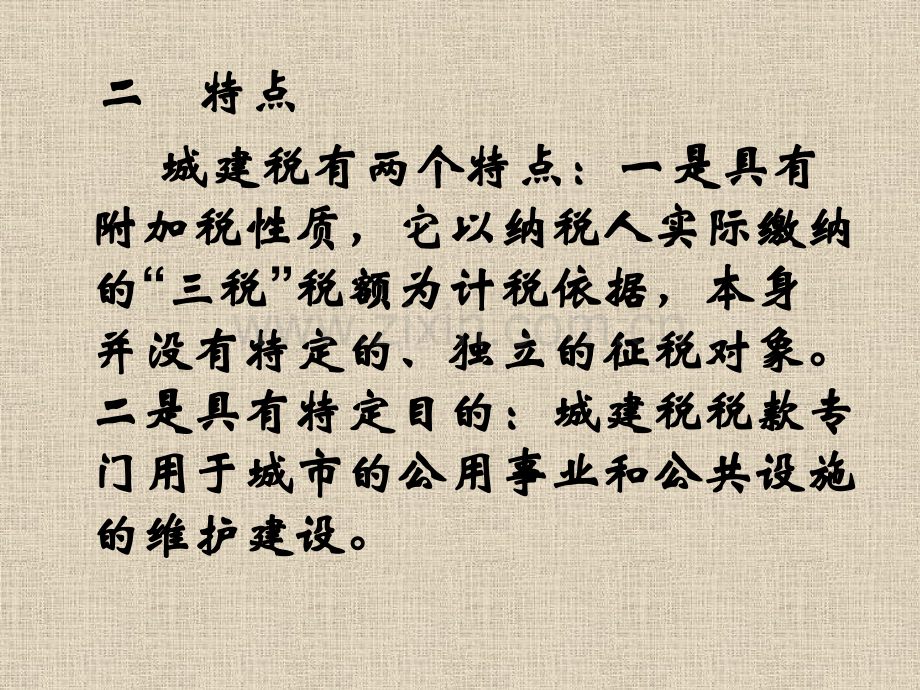 二 特点
城建税有两个特点：一是具有
附加税性质，它以纳税人实际缴纳
的“三税”税额为计税依据，本身
并没有特定的、独立的征税对象。
二是具有特定目的：城建税税款专
门用于城市的公用事业和公共设施
的维护建设。
www.zixin.com.cn